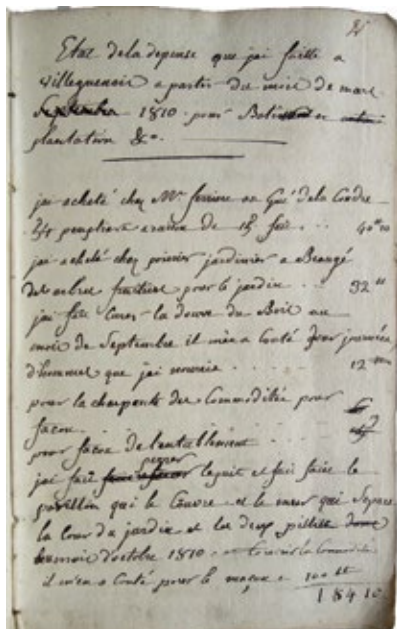 Etat de la depense que jai faitte a
villequenoir a partir du moi de mars
Septembre 1810 pour Batiment et
plantation &c.
jai acheté chez Mr ferriere au Gué de la Coudre
24 peupliers a raison de 15 s
jai acheté chez poirier jardinier a Beaugé
des arbres fruitiers pour le jardin .. 32
jai fait Curer la douve du Bois au
moi de Septembre il m'en a Couté pour journées
d'hommes que jai nourris . . 12
pour la charpente des Commodités pour
facon
pour facon de l'entablement
jai fait lepuit et fait faire le
pavillon qui le Couvre et le mur qui Separe
la Cour du jardin et les deux pilliers
moi d'octobre 1810
il m'en a Couté pour le maçon 100
184 10